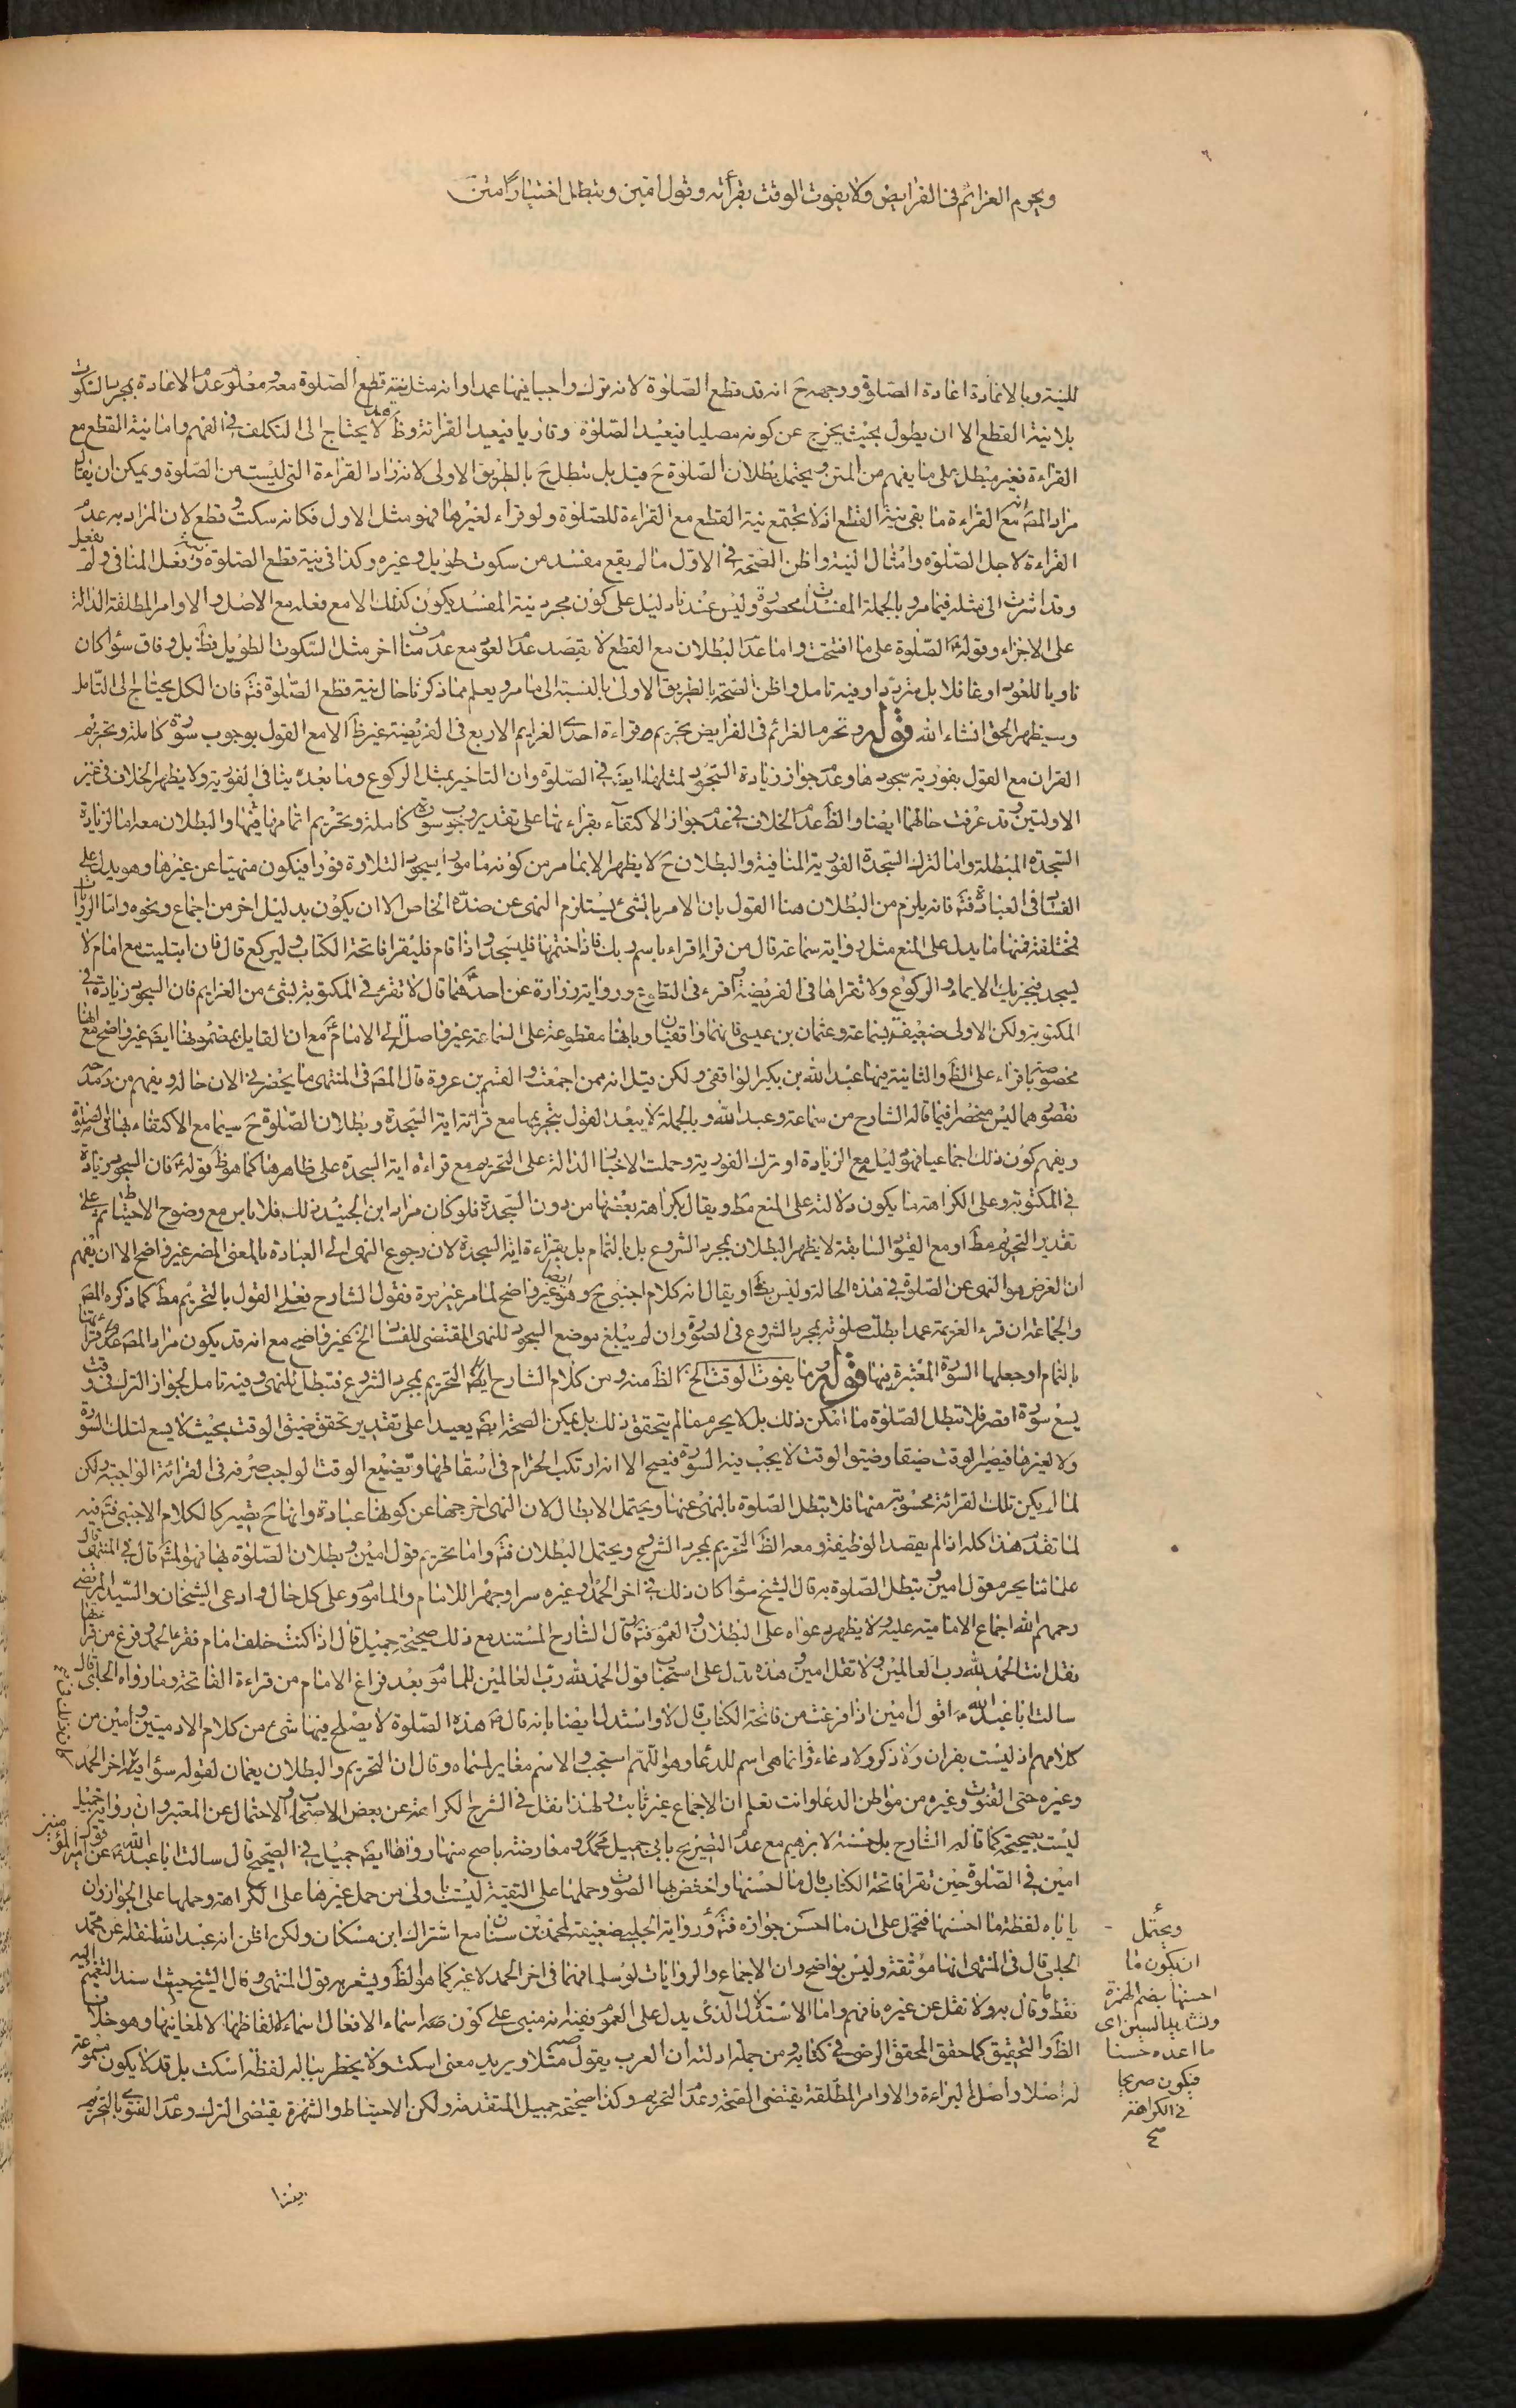 ويحرم العزائم في الفرايض ولا يفوت الوقت بقرائته وقول امين ويبطل اختيارا متن
للنية وبالاعادة اعادة الصلوة ووجهه ح انه قد قطع الصلوة لانه ترك واجبا فيها عمدا وانه مثل نية قطع الصلوة معه ومعلوم عدم الاعادة بمجرد السكوت
بلا نية القطع الا ان يطول بحيث يخرج عن كونه مصليا فيعيد الصلوة وقاريا فيعيد القرائة وظ لا يحتاج الى التكلف في الفهم واما نية القطع مع
القراءة فغير مبطل على ما يفهم من المتن ويحتمل بطلان الصلوة ح قيل بل تبطل ح بالطريق الاولى لانه زاد القراءة التي ليست من الصلوة ويمكن ان يقال
مراد المصـ انه مع القراءة ما بقي نية القطع اذ لا تجتمع نية القطع مع القراءة للصلوة ولو قراء لغيرها فهو مثل الاول فكانه سكت وقطع لان المراد به عدم
القراءة لاجل الصلوة وامثال النية واظن الصحة في الاول ما لم يقع مفسد من سكوت طويل وغيره وكذا في نية قطع الصلوة ونية فعل المنافي ولم يفعل
وقد اشرت الى مثله فيما مر وبالجملة المفسدات محصورة وليس عندنا دليل على كون مجرد نية المفسد يكون كذلك الا مع فعله مع الاصل والاوامر المطلقة الدالة
على الاجزاء وقوله ع الصلوة على ما افتتحت واما عدم البطلان مع القطع لا بقصد عدم العود مع عدم مناف اخر مثل السكوت الطويل فظ بل وفاق سواء كان
ناويا للعود او غافلا بل مترددا وفيه تامل واظن الصحة بالطريق الاولى بالنسبة الى ما مر ويعلم مما ذكرنا حال نية قطع الصلوة فتم فان الكل يحتاج الى التامل
وسيظهر الحق انشاء الله قوله وتحرم العزائم في الفرايض تحريم قراءة احدى العزايم الاربع في الفريضة غير ظ الا مع القول بوجوب سورة كاملة وتحريم
القران مع القول بفورية سجودها وعدم جواز زيادة السجود لمثلها ايضـ في الصلوة وان التاخير بمثل الركوع وما بعده ينافي الفورية ولا يظهر الخلاف في غير
الاولتين وقد عرفت حالهما ايضا والظ عدم الخلاف في عدم جواز الاكتفاء بقراءتها على تقدير وجوب سورة كاملة وتحريم اتمامها فيها والبطلان معه اما لزيادة
السجدة المبطلة واما لترك السجدة الفورية المنافية والبطلان ح لا يظهر الا بما مر من كونه مامورا بسجود التلاوة فورا فيكون منهيا عن غيرها وهو يدل على
الفساد في العبادة فتم فانه يلزم من البطلان هنا القول بان الامر بالشئ يستلزم النهي عن ضده الخاص الا ان يكون بدليل اخر من اجماع ونحوه واما الروايات
فمختلفة فمنها ما يدل على المنع مثل رواية سماعة قال من قرا اقراء باسم ربك فاذا ختمها فليسجد واذا قام فليقرا فاتحة الكتاب وليركع قال فان ابتليت مع امام لا
يسجد فيجزيك الايماء والركوع ولا تقراها في الفريضة اقرء في التطوع ورواية زرارة عن احدهما قال لا تقرء في المكتوبة بشئ من العزايم فان السجود زيادة في
المكتوبة ولكن الاولى ضعيفة بسماعة وعثمان بن عيسى فانهما واقفيان وبانها مقطوعة على السماعة غير واصل الى الامام ع مع ان القايل بمضمونها ايضـ غير واضح مع انها
مخصوصة باقراء على الظ والثانية فيها عبد الله بن بكير الواقفي ولكن قيل انه ممن اجمعت والقسم بن عروة قال المصـ في المنتهى ما يحضرني الان حاله ويفهم من رده
نقصوهما ليس منحصرا فيما قاله الشارح من سماعة وعبد الله وبالجملة لا يبعد القول بتحريمها مع قرائة اية السجدة وبطلان الصلوة ح سيما مع الاكتفاء بها في الصلوة
ويفهم كون ذلك اجماعيا فهو دليله مع الزيادة او ترك الفورية وحملت الاخبار الدالة على التحريم مع قراءة اية السجدة على ظاهرها كما هو ظ قوله ع فان السجود زيادة
في المكتوبة وعلى الكراهة ما يكون دلالته على المنع مط ويقال بكراهة بعضها من دون السجدة فلو كان مراد ابن الجنيد ذلك فلا باس مع وضوح الاحتياط ثم على
تقدير التحريم مط او مع القيود السابقة لا يظهر البطلان بمجرد الشروع بل بالتمام بل بقراءة اية السجدة لان رجوع النهي الى العبادة بالمعنى المضر غير واضح الا ان يفهم
ان الغرض هو النهي عن الصلوة في هذه الحالة وليس بظ او يقال انه كلام اجنبي ح وهو ايضا غير واضح لما مر غير مرة فقول الشارح فعلى القول بالتحريم مط كما ذكره المصـ
والجماعة ان قرء العزيمة عمدا بطلت صلوته بمجرد الشروع في السورة وان لم يبلغ موضع السجود للنهي المقتضي للفساد الخ غير واضح مع انه قد يكون مراد المصـ عدم قرائتها
بالتمام او جعلها السورة المعتبرة فيها قوله وما يفوت الوقت الخ الظ منه ومن كلام الشارح ايضـ التحريم بمجرد الشروع فتبطل للنهي وفيه تامل لجواز الترك في وقت
يسع سورة اقصر فلا تبطل الصلوة ما امكن ذلك بل لا يحرم ما لم يتحقق ذلك بل يمكن الصحة ايضـ بعيدا على تقدير تحقق ضيق الوقت بحيث لا يسع لتلك السورة
ولا لغيرها فيصير الوقت ضيقا وضيق الوقت لا يجب فيه السورة فيصح الا انه ارتكب الحرام في اسقاطها وتضييع الوقت لواجب صرفه في القرائة الواجبة ولكن
لما لم يكن تلك القرائة محسوبة منها فلا تبطل الصلوة بالنهي عنها ويحتمل الابطال لان النهي اخرجها عن كونها عبادة وانها ح يصير كالكلام الاجنبي فتم فيه
لما تقدم هذا كله اذا لم يقصد الوظيفة ومعه الظ التحريم بمجرد الشروع ويحتمل البطلان فتم واما تحريم قول امين وبطلان الصلوة بها فهو المشهـ قال في المنتهى قال
علمائنا يحرم قول امين وتبطل الصلوة به قال الشيخ سواء كان ذلك في اخر الحمد او غيره سرا وجهرا للامام والماموم وعلى كل حال وادعى الشيخان والسيد المرتضى
رحمهم الله اجماع الامامية عليه ولا يظهر دعواه على البطلان والعموم فتم قال الشارح المستند مع ذلك صحيحة جميل قال اذا كنت خلف امام فقرء الحمد وفرغ من قرائتها
فقل انت الحمد لله رب العالمين ولا تقل امين وهذه تدل على استحباب قول الحمد لله رب العالمين للماموم بعد فراغ الامام من قراءة الفاتحة وما رواه الحلبي قال
سالت ابا عبد الله ع اقول امين اذا فرغت من فاتحة الكتاب قال لا واستدل ايضا بانه قال ع هذه الصلوة لا يصلح فيها شئ من كلام الادميين وامين من
كلامهم اذ ليست بقران ولا ذكر ولا دعاء وانما هي اسم للدعاء وهو اللهم استجب والاسم مغاير لمسماه وقال ان التحريم والبطلان يعمان لقوله سواء فيه اخر الحمد
وغيره حتى القنوت وغيره من مواطن الدعاء وانت تعلم ان الاجماع غير ثابت ولهذا نقل في الشرح الكراهة عن بعض الاصحاب والاحتمال عن المعتبر وان رواية جميل
ليست بصحيحة كما قاله الشارح بل حسنة لابرهيم مع عدم التصريح بابي جميل محمد ومعارضته باصح منها رواها ايضـ جميل في الصحيح قال سالت ابا عبد الله ع عن قول
امين في الصلوة حين تقرا فاتحة الكتاب قال ما احسنها واخفض بها الصوت وحملها على التقية ليست باولى من حمل غيرها على الكراهة وحملها على الجواز وان
ياباه لفظة ما احسنها فتحمل على ان ما احسن جوازه فتم ورواية الحلبي ضعيفة لمحمد بن سنان مع اشتراك ابن مسكان ولكن اظن انه عبد الله لنقله عن محمد
الحلبي قال في المنتهى انها موثقة وليس بواضح وان الاجماع والروايات لو سلما فهما في اخر الحمد لا غير كما هو الظ ويشعر به قول المنتهى وقال الشيخ حيث اسند التعميم اليه
فقط وقال به ولا نقل عن غيره فافهم واما الاستدلال الذي يدل على العموم ففيه انه مبني على كون صه اسماء الافعال اسماء لالفاظها لا لمعانيها وهو خلاف
الظ والتحقيق كما حقق المحقق الرضي في كتابه ومن جملة ادلته ان العرب يقول صه مثلا ويريد معنى اسكت ولا يخطر بباله لفظة اسكت بل قد لا يكون مسموعة
له اصلا واصل البراءة والاوامر المطلقة يقتضي الصحة وعدم التحريم وكذا صحيحة جميل المتقدمة ولكن الاحتياط والشهرة يقتضي الترك وعدم الفتوى بالتحريم
ويحتمل
ان يكون ما
احسنها بضم الهمزة
وتشديد السين اى
ما اعده حسنا
فيكون صريحا
في الكراهة
صح